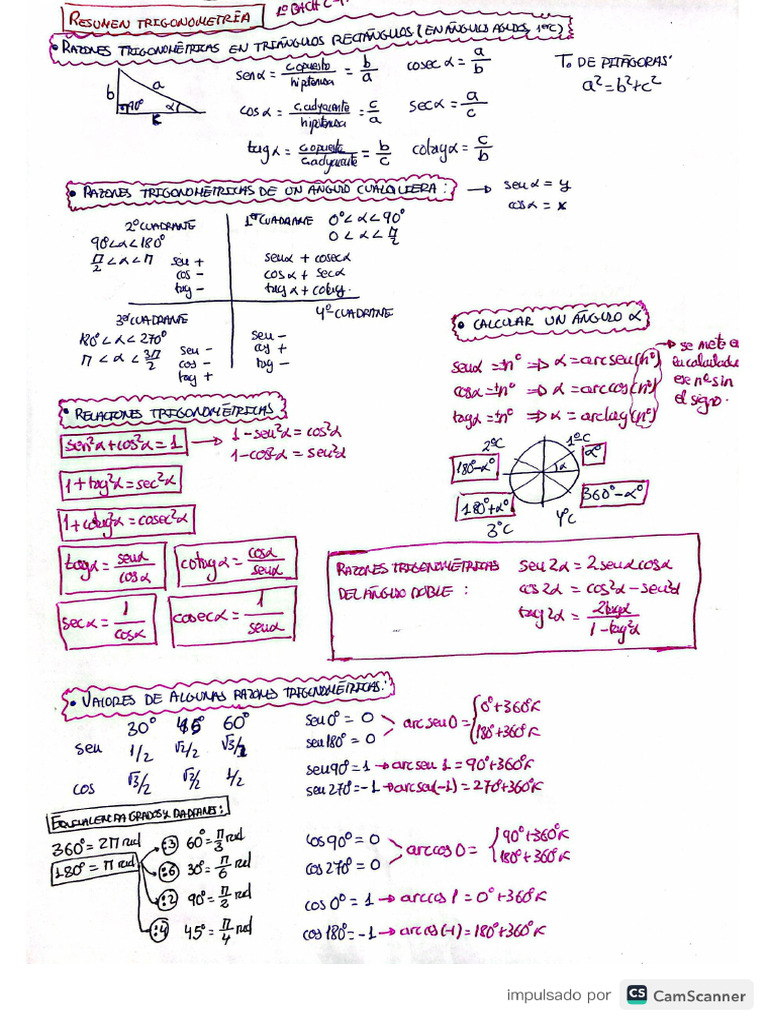 RESUMEN TRIGONOMETRÍA
• RAZONES TRIGONOMÉTRICAS EN TRIÁNGULOS RECTÁNGULOS (EN ÁNGULOS AGUDOS, 1ºC)
b a 90º α c
sen α = c.opuesto/hipotenusa = b/a cosec α = a/b
Tº DE PITÁGORAS:
a² = b² + c²
cos α = c.adyacente/hipotenusa = c/a sec α = a/c
tag α = c.opuesto/c.adyacente = b/c cotag α = c/b
• RAZONES TRIGONOMÉTRICAS DE UN ÁNGULO CUALQUIERA: → sen α = y
cos α = x
2º CUADRANTE
90º < α < 180º
π/2 < α < π
sen +
cos −
tag −
1er CUADRANTE 0º < α < 90º
0 < α < π/2
sen α + cosec α
cos α + sec α
tag α + cotag.
3º CUADRANTE
180º < α < 270º
π < α < 3π/2
sen −
cos −
tag +
4º CUADRANTE
sen −
cos +
tag −
• CALCULAR UN ÁNGULO α
sen α = ±nº ⇒ α = arcsen(nº)
cos α = ±nº ⇒ α = arccos(nº)
tag α = ±nº ⇒ α = arctag(nº)
→ se mete en
calculadora
ese nº sin
el signo.
2ºC 1ºC
180º−αº α αº
180º+αº 360º−αº
3ºC 4ºC
• RELACIONES TRIGONOMÉTRICAS
sen²α + cos²α = 1 → 1 − sen²α = cos²α
1 − cos²α = sen²α
1 + tag²α = sec²α
1 + cotag²α = cosec²α
tag α = sen α/cos α cotag α = cos α/sen α
sec α = 1/cos α cosec α = 1/sen α
RAZONES TRIGONOMÉTRICAS
DEL ÁNGULO DOBLE:
sen 2α = 2 sen α cos α
cos 2α = cos²α − sen²α
tag 2α = 2tag α/1 − tag²α
• VALORES DE ALGUNAS RAZONES TRIGONOMÉTRICAS:
30º 45º 60º
sen 1/2 √2/2 √3/2
cos √3/2 √2/2 1/2
sen 0º = 0
sen 180º = 0
arc sen 0 = { 0º + 360º K
180º + 360º K
sen 90º = 1 → arc sen 1 = 90º + 360º K
sen 270º = −1 → arc sen(−1) = 270º + 360º K
EQUIVALENCIA GRADOS Y RADIANES:
360º = 2π rad
180º = π rad
:3 60º = π/3 rad
:6 30º = π/6 rad
:2 90º = π/2 rad
:4 45º = π/4 rad
cos 90º = 0
cos 270º = 0
arccos 0 = { 90º + 360º K
180º + 360º K
cos 0º = 1 → arccos 1 = 0º + 360º K
cos 180º = −1 → arc cos(−1) = 180º + 360º K
impulsado por CS CamScanner